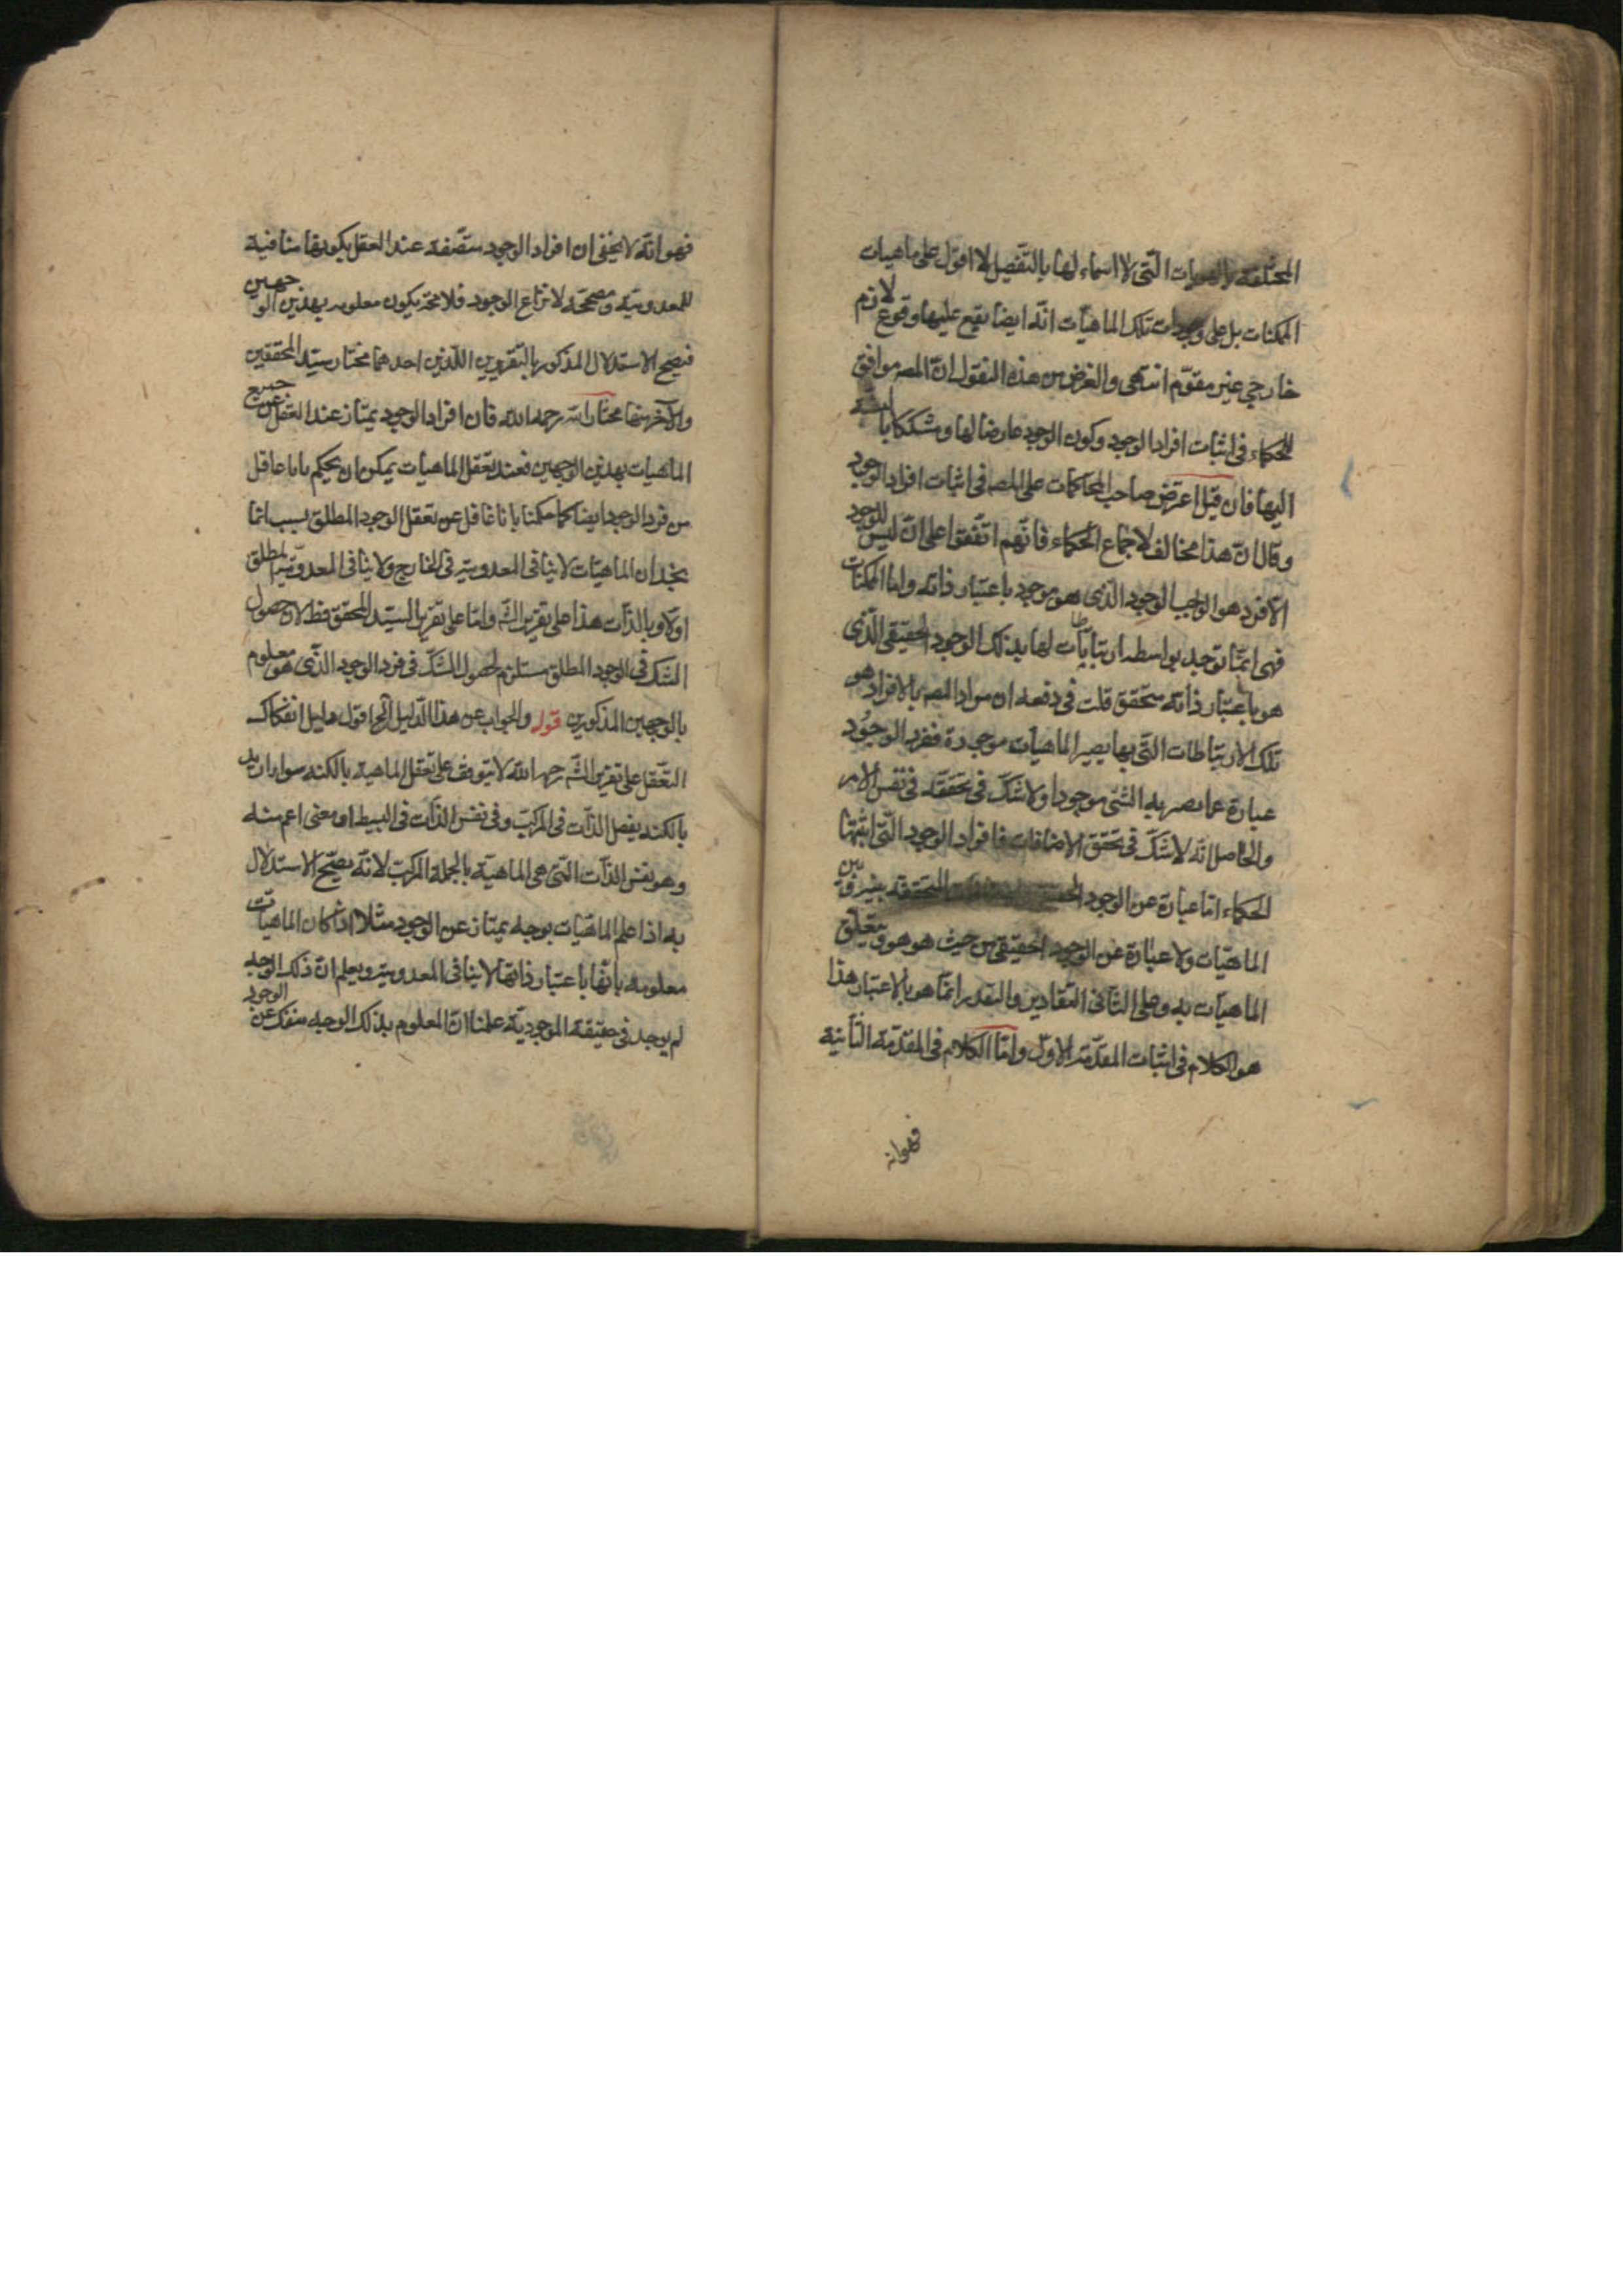 المختلفة بالهويات التي لا اسماء لها بالتفصيل لا اقول على ماهيات
الممكنات بل على وجودات تلك الماهيات انه ايضا يقع عليها وقوع لازم
خارجي غير مقوم انتهى والغرض من هذه النقول ان المصـ موافق
للحكماء في اثبات افراد الوجود وكون الوجود عارضا لها ومشككا بالنسبة
اليها فان قيل اعترض صاحب المحاكمات على المصـ في اثبات افراد الوجود
وقال ان هذا مخالف لاجماع الحكماء فانهم اتفقوا على ان ليس للوجود
الا فرد هو الواجب الوجود الذي هو موجود باعتبار ذاته واما الممكنات
فهي انما توجد بواسطه ارتباطات لها بذلك الوجود الحقيقي الذي
هو باعتبار ذاته متحقق قلت في دفعه ان مراد المصـ بالافراد هو
تلك الارتباطات التي بها يصير الماهيات موجودة ففرد الوجود
عبارة عما يصير به الشئ موجودا ولا شك في تحققه في نفس الامر
والحاصل انه لا شك في تحقق الاضافات فافراد الوجود التي اثبتها
الحكماء اما عبارة عن الوجود المتحققة بينه وبين
الماهيات ولا عبارة عن الوجود الحقيقي من حيث هو هو وتعلق
الماهيات به وعلى الثاني التقادير والتعدد انما هو بالاعتبار هذا
هو الكلام في اثبات المقدمة الاولى واما الكلام في المقدمة الثانية
فهو انه
فهو انه لا يخفى ان افراد الوجود متصفة عند العقل بكونها منافية
للمعدومية ومصححة لانتزاع الوجود فلا محة يكون معلومه بهذين الوجهين
فيصح الاستدلال المذكور بالتقريرين اللذين احدهما مختار سيد المحققين
والآخر منهما مختار الشـ رحمه الله فان افراد الوجود يمتاز عند العقل عن جميع
الماهيات بهذين الوجهين فعند تعقل الماهيات يمكن ان يحكم بانا غافل
من فرد الوجود ايضا كما حكمنا بانا غافل عن تعقل الوجود المطلق بسبب انا
نجد ان الماهيات لا ينافي المعدومية في الخارج ولا ينافي المعدومية المطلق
اولا وبالذات هذا على تقرير الشـ واما على تقرير السيد المحقق فظ لان حصول
الشك في الوجود المطلق مستلزم لحصول الشك في فرد الوجود الذي هو معلوم
بالوجهين المذكورين قوله والجواب عن هذا الدليل الخ اقول دليل انفكاك
التعقل على تقرير الشـ رحمه الله لا يتوقف على تعقل الماهية بالكنه سوا اريد
بالكنه يفصل الذات في المركب وفي نفس الذات في البسيط او معنى اعم منه
وهو نفس الذات التي هي الماهية بالجملة المركب لانه يصح الاستدلال
به اذا علم الماهيات بوجه يمتاز عن الوجود مثلا اذا كان الماهيات
معلومه بانها باعتبار ذاتها لا ينافي المعدومية ويعلم ان ذلك الوجه
لم يوجد في حقيقة الموجودية علمنا ان المعلوم بذلك الوجه منفك عن الوجود